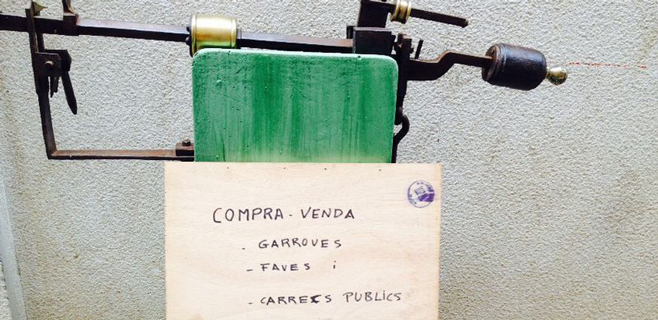 COMPRA - VENDA
- GARROVES
- FAVES i
- CARRECS PUBLICS